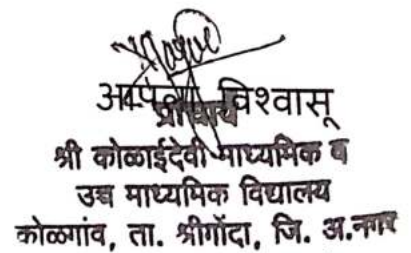 आपला विश्वासू
प्राचार्य
श्री कोळाईदेवी माध्यमिक व
उच्च माध्यमिक विद्यालय
कोळगांव, ता. श्रीगोंदा, जि. अ.नगर